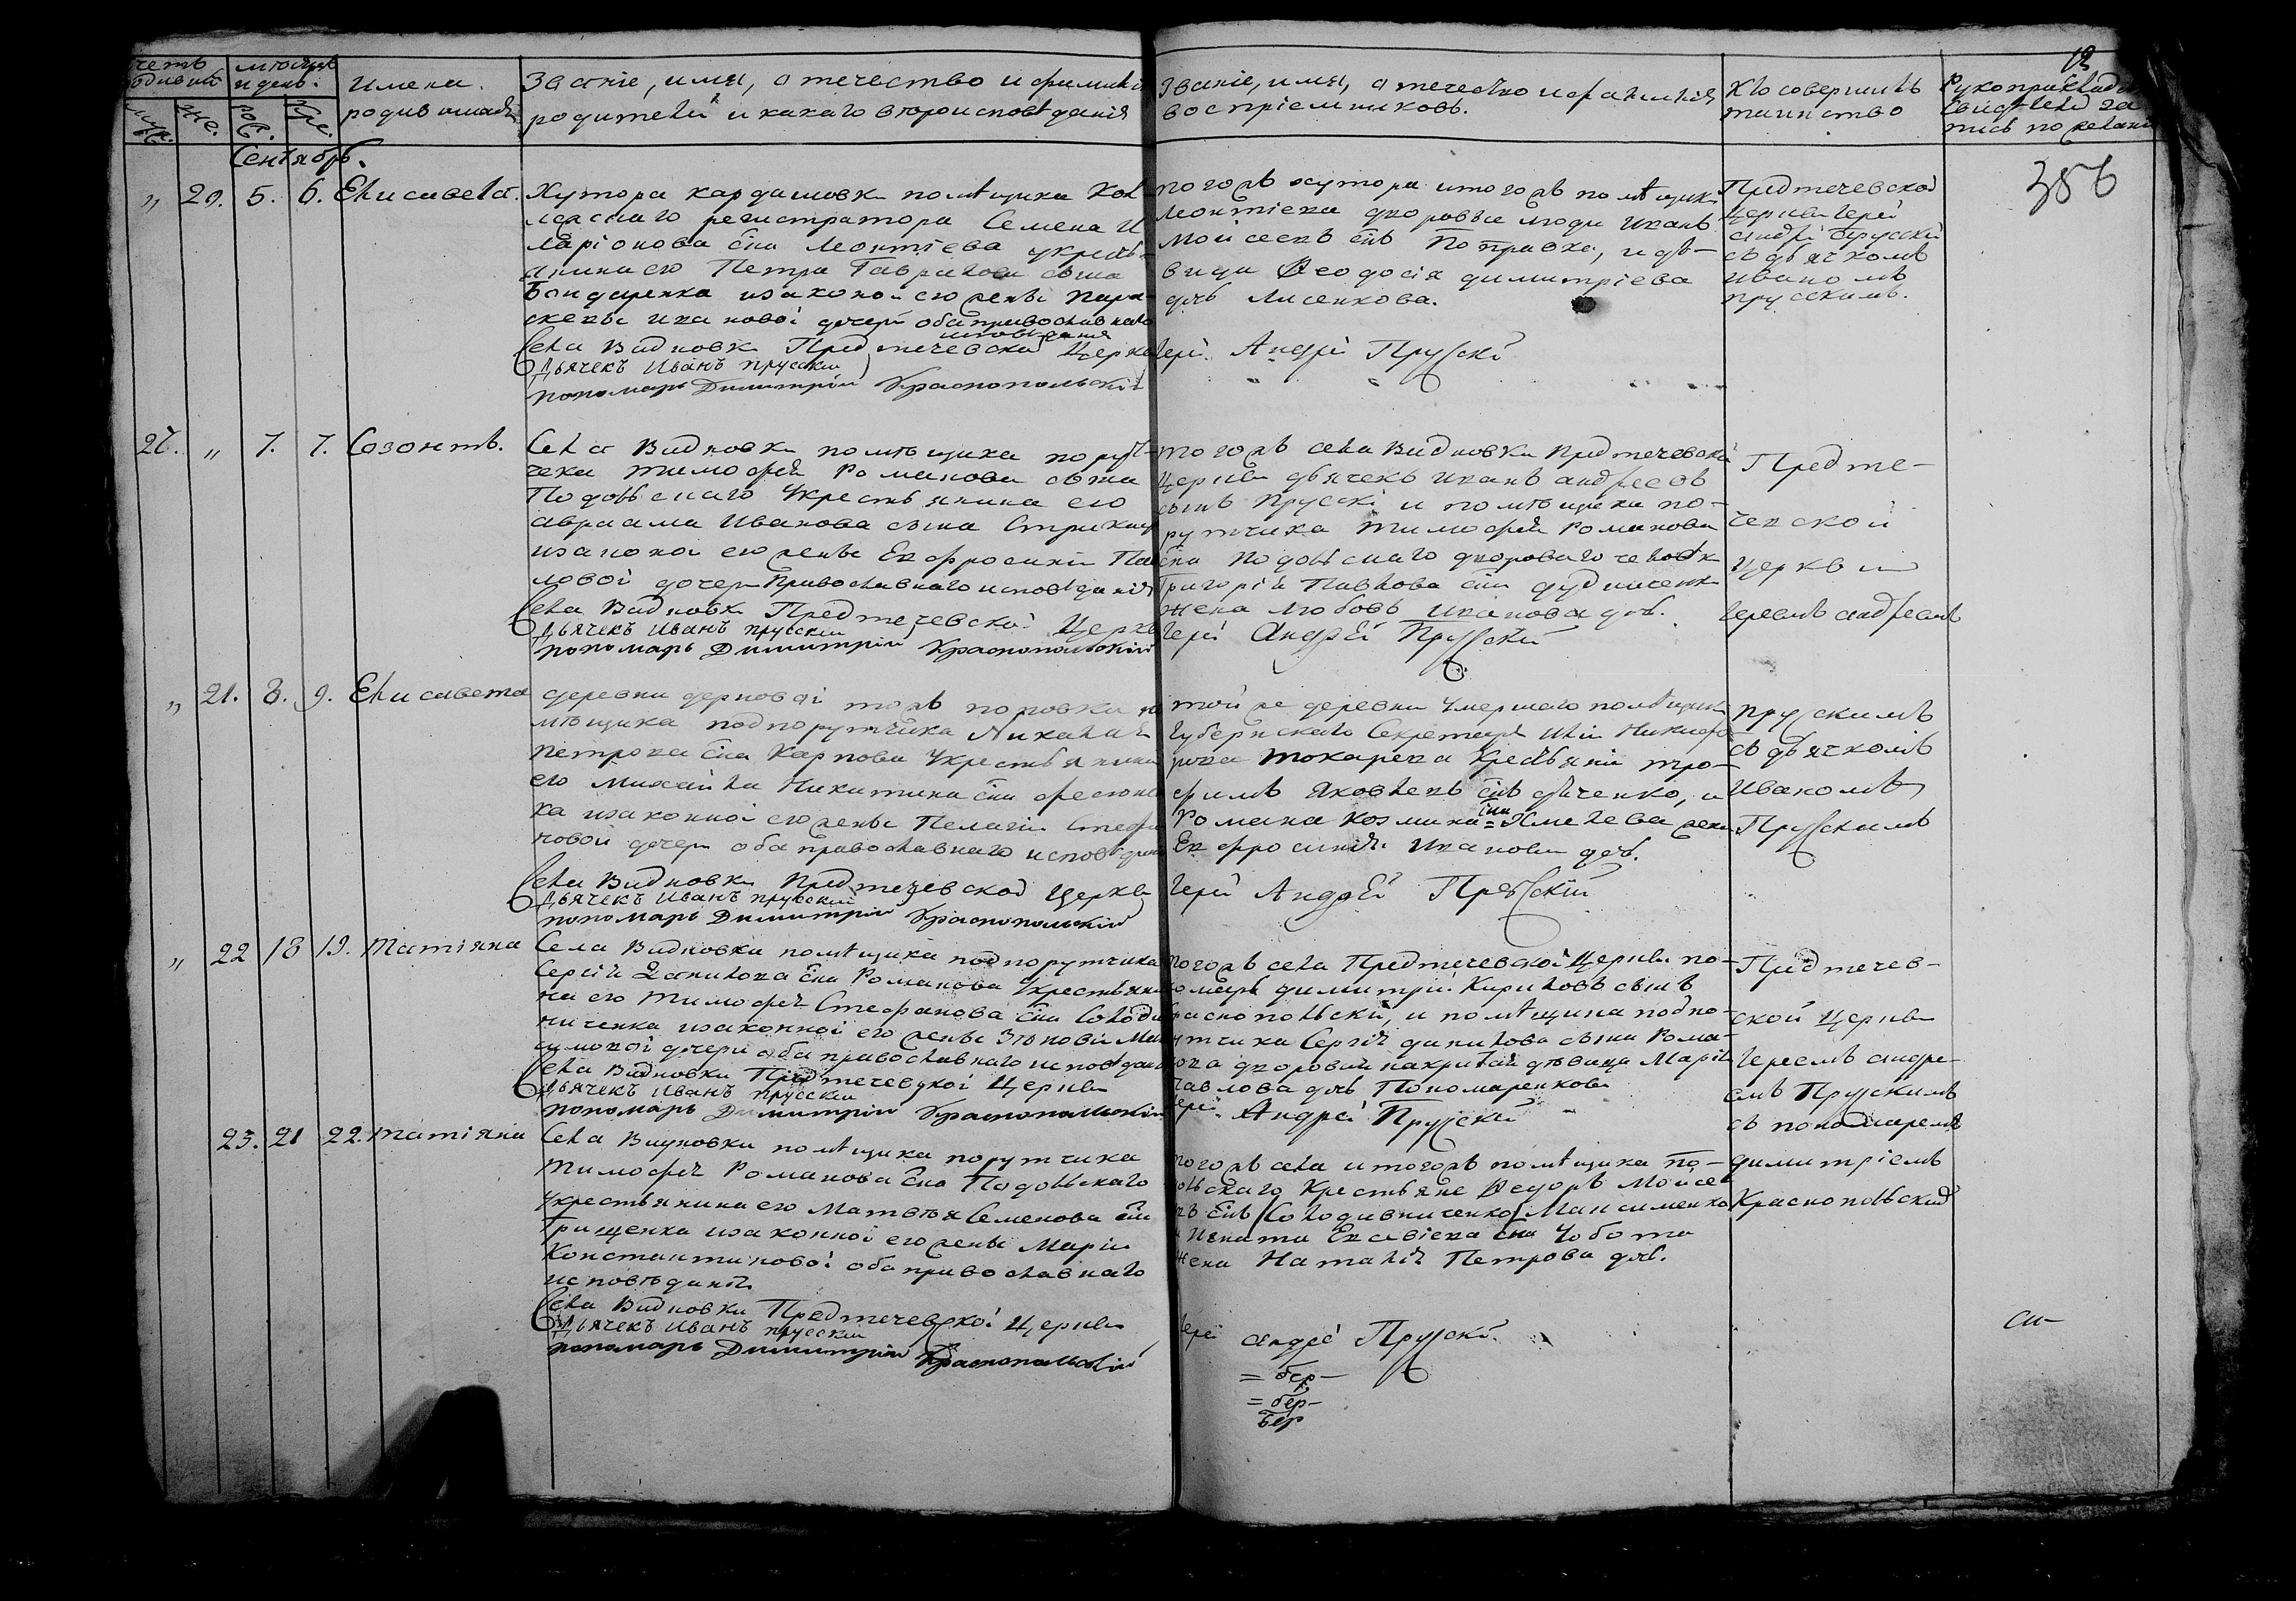 Имена
родившихся
Званіе, имя, отечество и фамилія
родителей и какаго вѣроисповѣданія
Званіе, имя, отечество и фамилія
воспріемниковъ.
Кто совершилъ
таинство
Сентябрь.
356
„ 20. 5. 6. Елисавета.
Хутора кардашовки помѣщика Кол
регистратора Семена И
ларіонова сна Леонтіева укресть-
янина его Петра Гаврилова сына
Бондаренка изаконой его жены Пара-
скевы Ивановоі дочери оба православнаго
исповѣданія
Села Видновки Предтечевской Церкви
Дьячекъ Иванъ Прусскій
пономарь Димитрій Краснопольскій
тогожъ хутора итогожъ помѣщика
Леонтіева дворовые люди Иванъ
Моисеевъ снъ Поправка, и дѣ-
вица Ѳеодосія димитріева
дчь Лисенкова.
Іерей Андрей Прускі
Предтечевской
Церкви Іерей
Андрей Прускій
съ дьячкомъ
Иваномъ
прусскимъ.
„ 7. 7. Созонтъ.
Села Видновки помѣщика порут-
чика тимофея Романова сына
Подольскаго Укрестьянина его
авраама Иванова сына
изаконой его жены Евфросиніи Пав
ловоі дочери Православнаго исповѣданія
Села Видновки Предтечевскоі Церкви
Дьячекъ Иванъ прусскій
пономарь Димитрій Краснопольскій
тогожъ села Видновки Предтечевской
Церкви дьячекъ Иванъ андреевъ
сынъ Прускі и помѣщика по-
рутчика Тимофея Романова
сна Подольскаго двороваго человѣка
Григорія Павлова сна
жена Любовь иванова дчь.
Іерей Андрей Прускій
Предте-
чевской
церкви
Іереемъ андреемъ
„ 21. 8. 9. Елисавета
деревни дерновоі тожъ поповки по
мѣщика подпорутчика Михаила
петрова сна Карпова Укрестьянина
его Михаила Никитина сна
ка изаконноі его жены Пелагіи Стефа
новой дочери оба православнаго исповѣданія
Села Видновки Предтечевской Церкви
Дьячекъ Иванъ прусскій
пономарь Димитрій Краснопольскій
тойже деревни Умершаго помѣщика
Губернскаго Секретаря Никифо
рова токарева Крестьянинъ тро-
фимъ Яковлевъ снъ и
Романа козмина сна жена
Евфросинія Иванова дчь.
Іерей Андрей Прускій
прускимъ
съ дьячкомъ
Иваномъ
Прускимъ
„ 22 18 19. Татіяна
Села Видновки помѣщика подпорутчика
Сергія Данилова сна Романова Укрестьяни
на его Тимофея Стефанова сна
ниченка изаконноі его жены Зѣновіи Мак
симовоі дочери оба православнаго исповѣданія
Села Видновки Предтечевскоі Церкви
Дьячекъ Иванъ прусскій
пономарь Димитрій Краснопольскій
тогожъ села Предтечевской Церкви по-
номарь димитрій Кириловъ сынъ
Краснопольскі, и помѣщика подпо-
рутчика Сергія данилова сына Рома-
нова дворовая дѣвица Марія
Павлова дчь Пономаренкова
Іерей Андрей Прускій
Предтечев-
ской Церкви
Іереемъ андре-
емъ Прускимъ
съ пономаремъ
23. 21 22. Татіяна
Села Видновки помѣщика порутчика
Тимофея Романова сна Подольскаго
Укрестьянина его Матвѣя Семенова сна
Грищенка изаконноі его жены Маріи
Константиновоі оба православнаго
исповѣданія
Села Видновки Предтечевскоі Церкви
Дьячекъ Иванъ прусскій
пономарь Димитрій Краснопольскій
тогожъ села итогожъ помѣщика По-
дольскаго Крестьяне Ѳедоръ Моисе
евъ снъ Максименко
и Игната Евсевіева сна Чобота
жена Наталія Петрова дчь.
Іерей андрей Прускі
димитріемъ
Краснопольскимъ